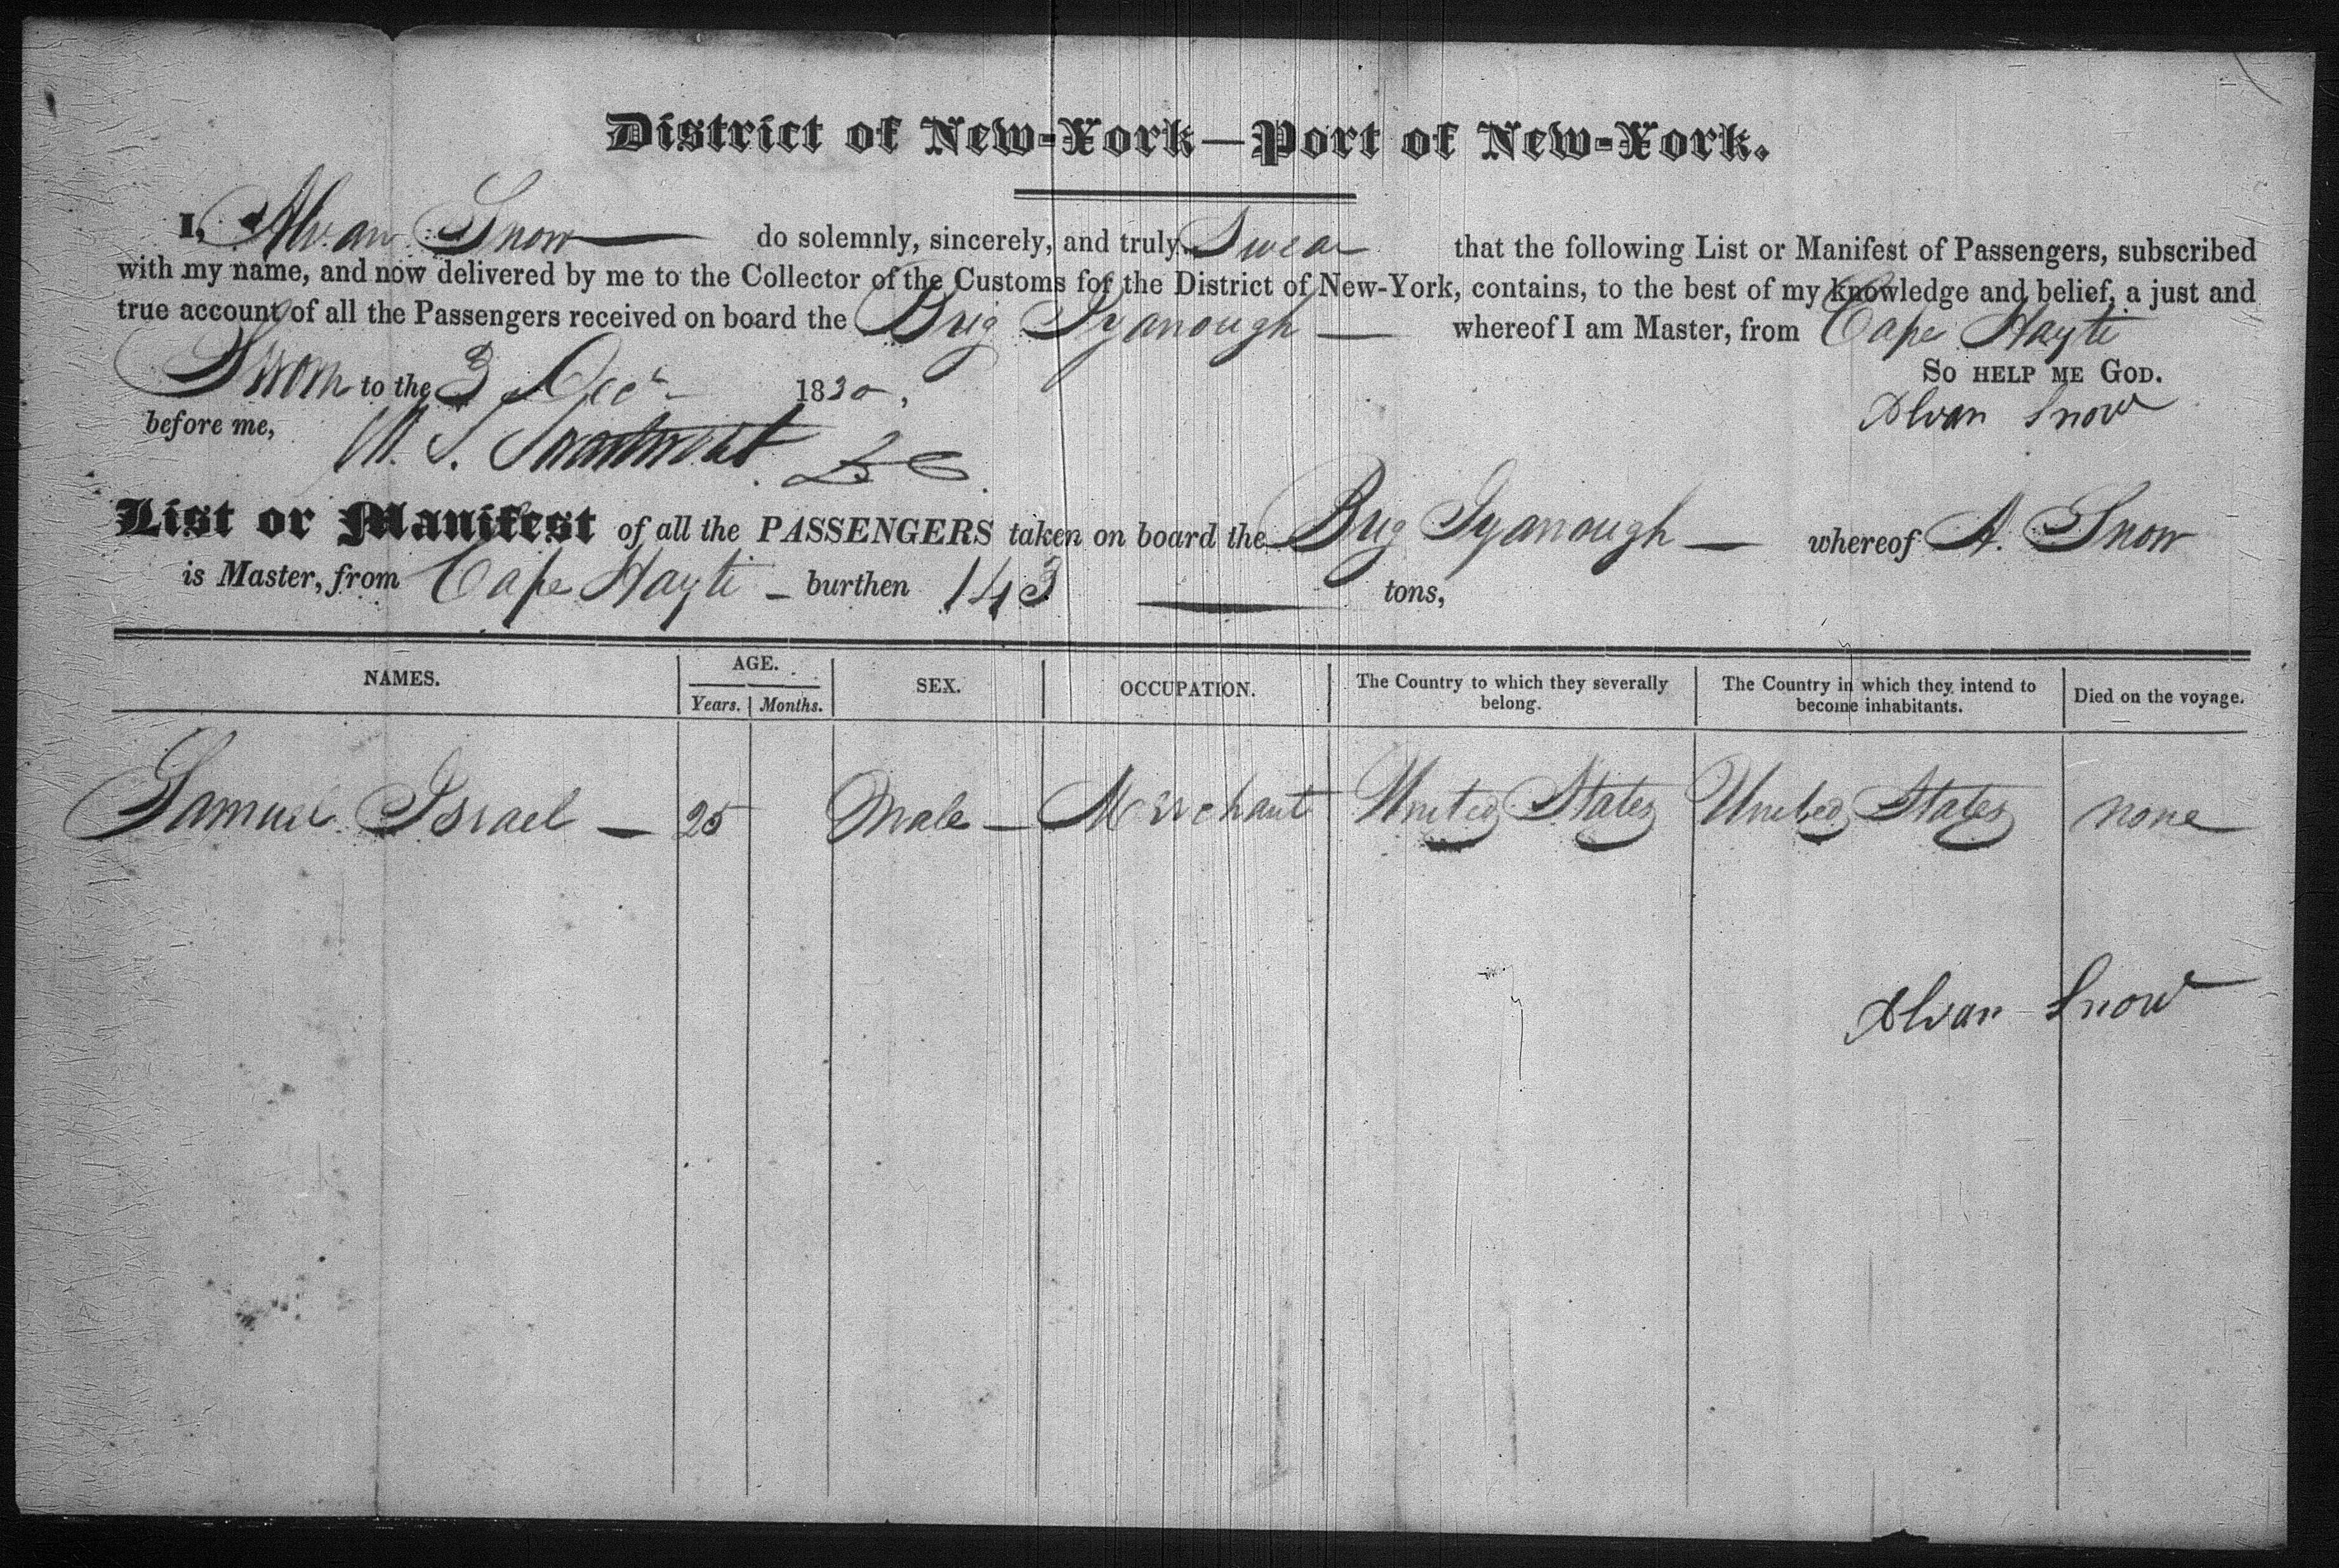 District of New-York—Port of New-York.
I, Alvan Snow — do solemnly, sincerely, and truly Swear that the following List or Manifest of Passengers, subscribed
with my name, and now delivered by me to the Collector of the Customs for the District of New-York, contains, to the best of my knowledge and belief, a just and
true account of all the Passengers received on board the Brig Iyanough — whereof I am Master, from Cape Hayti
So help me God.
Sworn to the 3 Decr 1830,
Alvan Snow
before me,
List or Manifest of all the PASSENGERS taken on board the Brig Iyanough — whereof A. Snow
is Master, from Cape Hayti — burthen 143 — tons,
NAMES. AGE. Years. Months. SEX. OCCUPATION. The Country to which they severally belong. The Country in which they intend to become inhabitants. Died on the voyage.
Samuel Israel — 25 Male — Merchant United States United States none
Alvan Snow